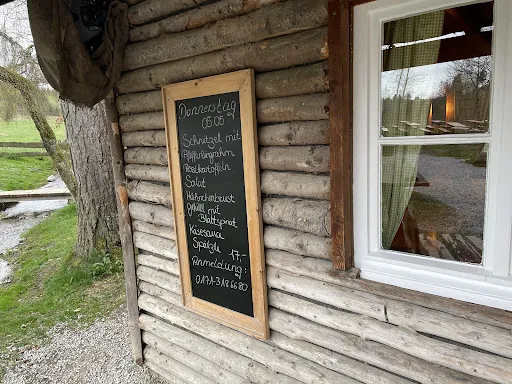 Donnerstag
05.05
Schnitzel mit
Pfifferlingrahm
Röstkartoffeln
Salat
Hähnchinbrust
gefüllt mit
Blattspinat
Käsesauce
Spätzle 17,-
Anmeldung:
0171-3186680